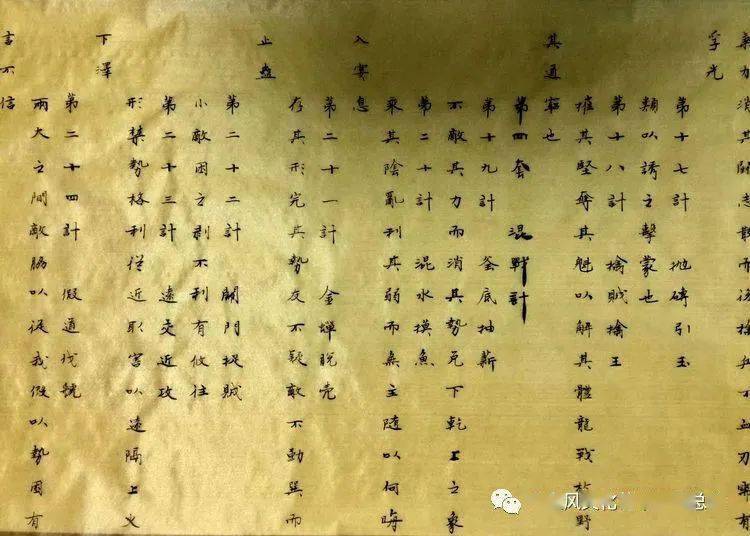 氣力消其鬪志散而後擒兵不血刃需有
孚光
第十七計 抛磚引玉
類以誘之擊蒙也
第十八計 擒賊擒王
摧其堅奪其魁以解其體龍戰於野
其道窮也
第四套 混戰計
第十九計 釜底抽薪
不敵其力而消其勢兌下乾上之象
第二十計 混水摸魚
乘其陰亂利其弱而無主隨以何晦
入宴息
第二十一計 金蟬脫壳
存其形完其勢友不疑敵不動巽而
止蠱
第二十二計 關門捉賊
小敵困之剥不利有攸往
第二十三計 遠交近攻
形禁勢格利從近取害以遠隔上火
下澤
第二十四計 假道伐虢
兩大之間敵脇以從我假以勢困有
言不信
风